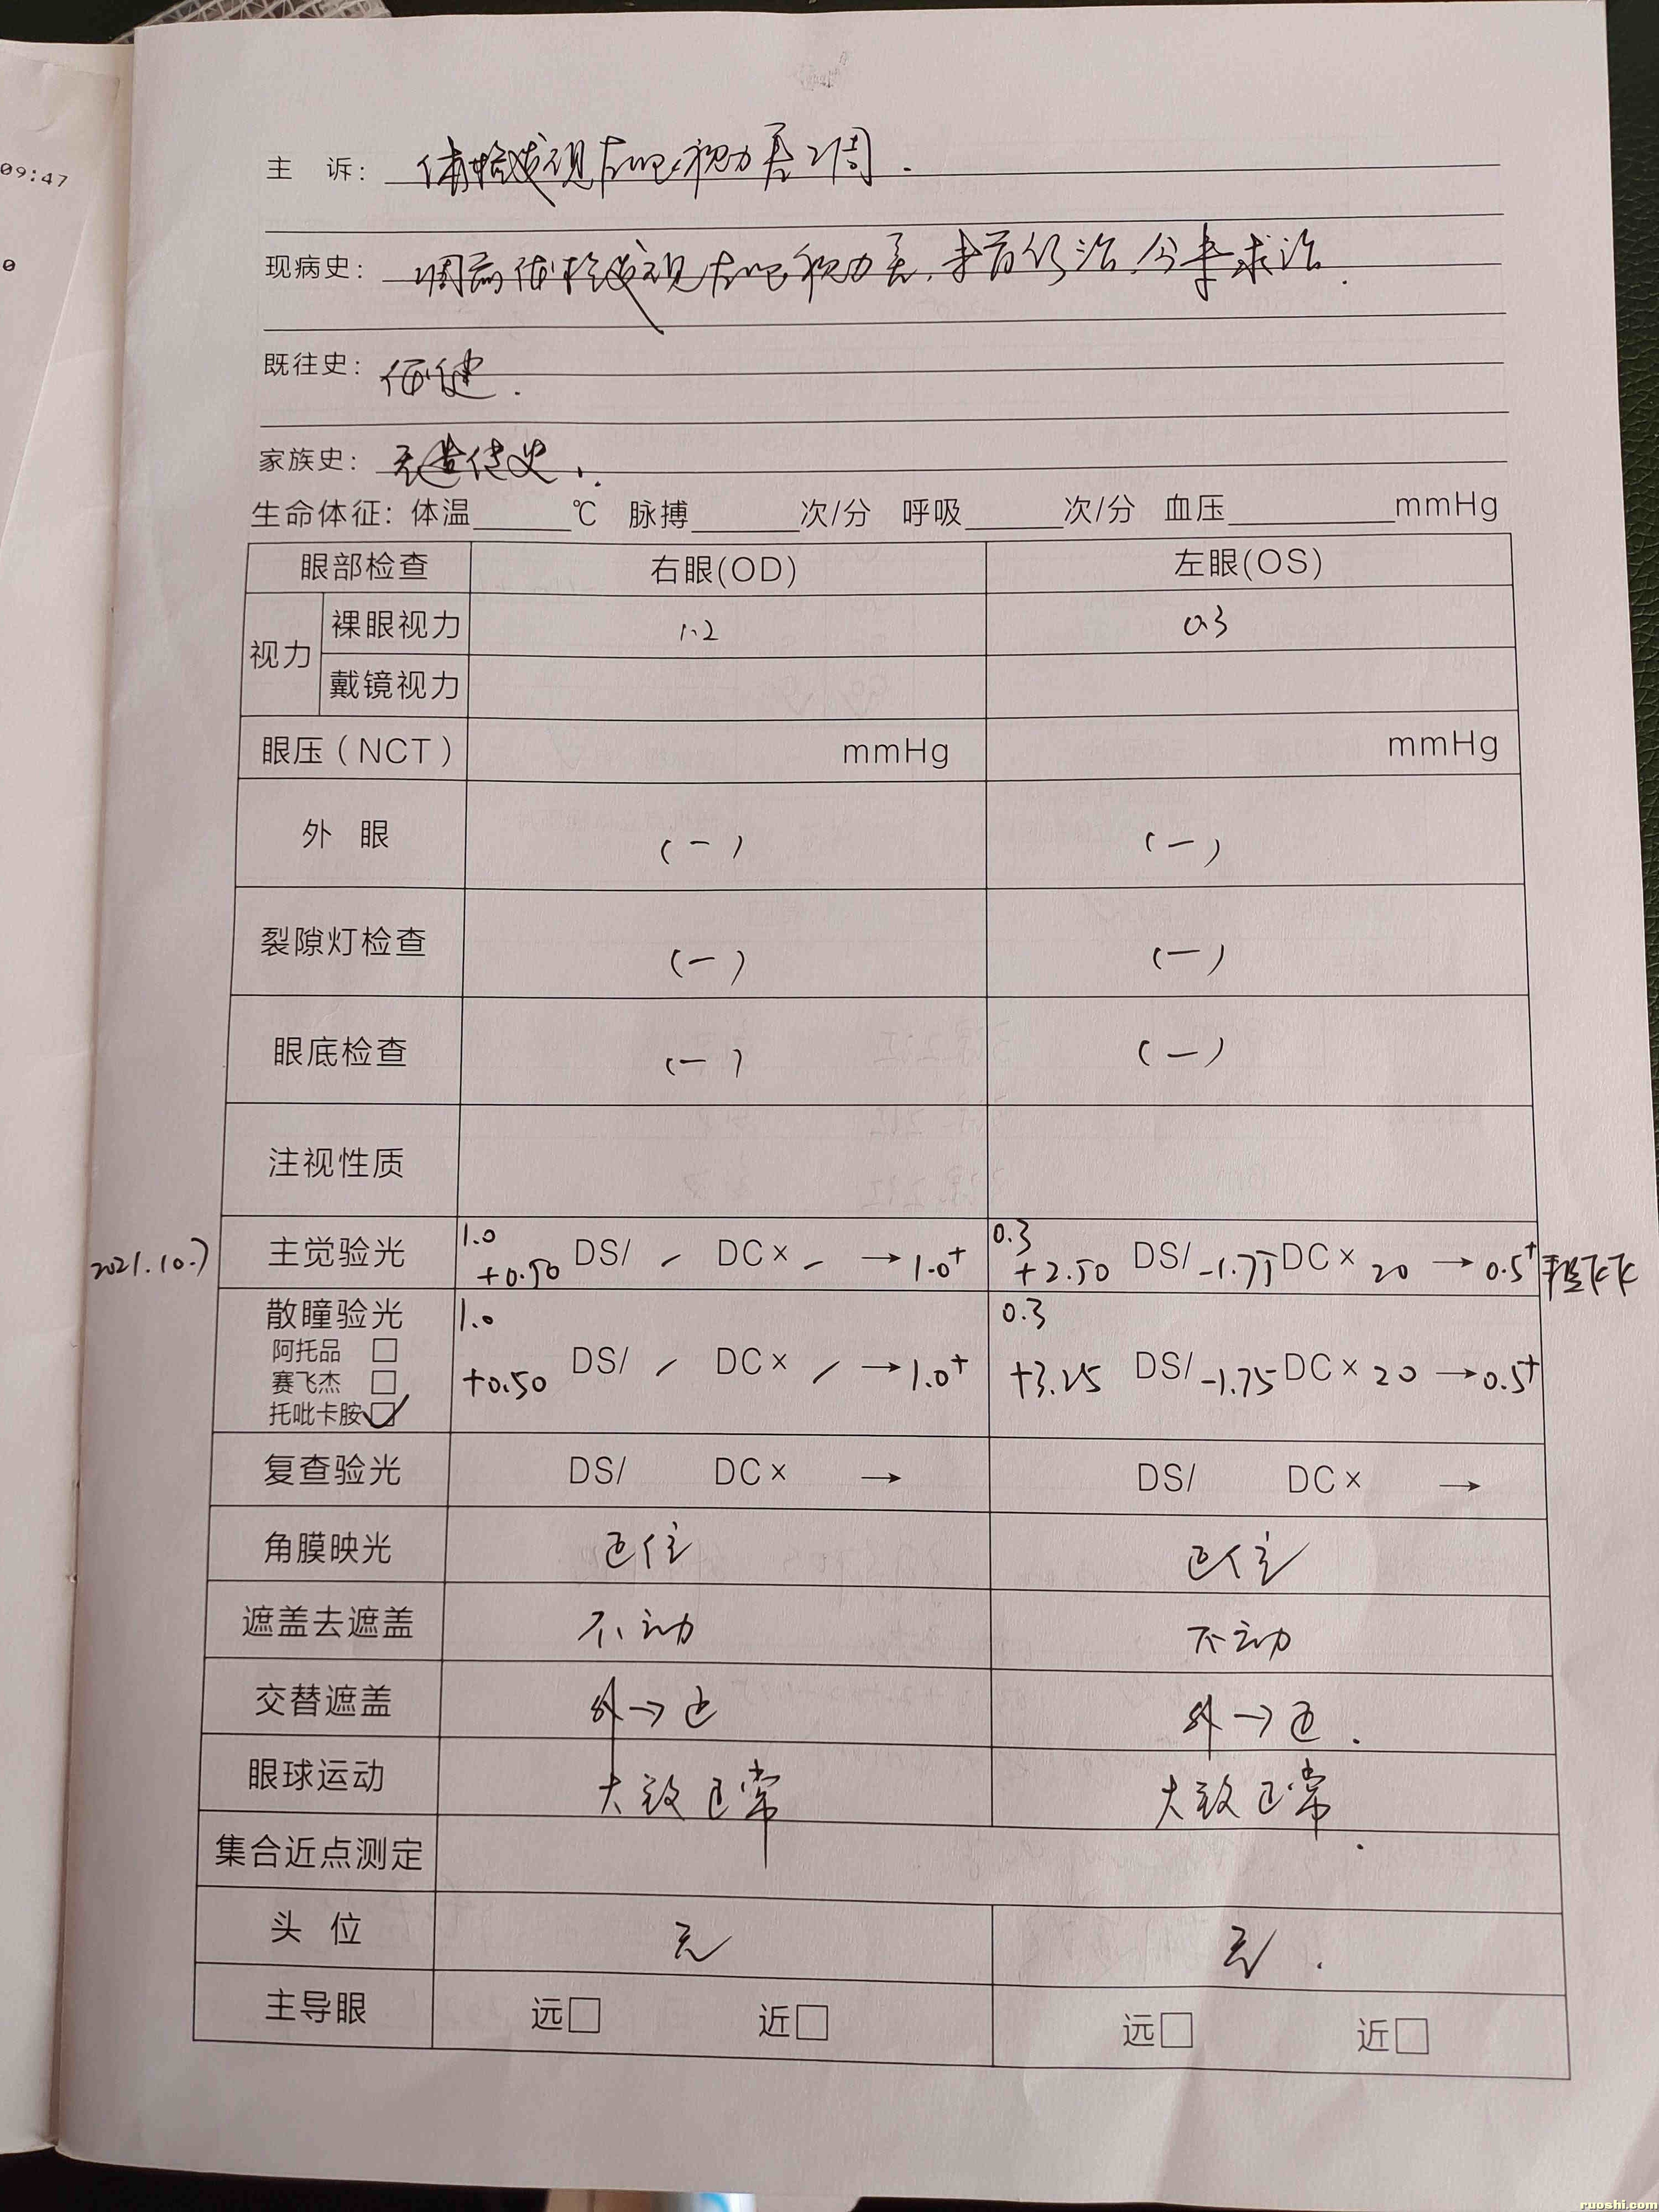 09:47
0
主 诉: 体检发现左眼视力差2周.
现病史: 2周前体检发现左眼视力差,未曾作治.今来求治.
既往史: 体健.
家族史: 无遗传史.
生命体征: 体温 ℃ 脉搏 次/分 呼吸 次/分 血压 mmHg
眼部检查 右眼(OD) 左眼(OS)
视力
裸眼视力 1.2 0.3
戴镜视力
眼压(NCT) mmHg mmHg
外 眼 (一) (一)
裂隙灯检查 (一) (一)
眼底检查 (一) (一)
注视性质
2021.10.7 主觉验光 1.0 +0.50 DS/ / DC× / →1.0⁺ 0.3 +2.50 DS/ -1.75 DC× 20 →0.5⁺
散瞳验光 1.0 +0.50 DS/ / DC× / →1.0⁺ 0.3 +3.25 DS/ -1.75 DC× 20 →0.5⁺
阿托品 □
赛飞杰 □
托吡卡胺 ☑
复查验光 DS/ DC× → DS/ DC× →
角膜映光 正位 正位
遮盖去遮盖 不动 不动
交替遮盖 外→正 外→正.
眼球运动 大致正常 大致正常.
集合近点测定
头 位 无 无.
主导眼 远□ 近□ 远□ 近□
ruoshi.com